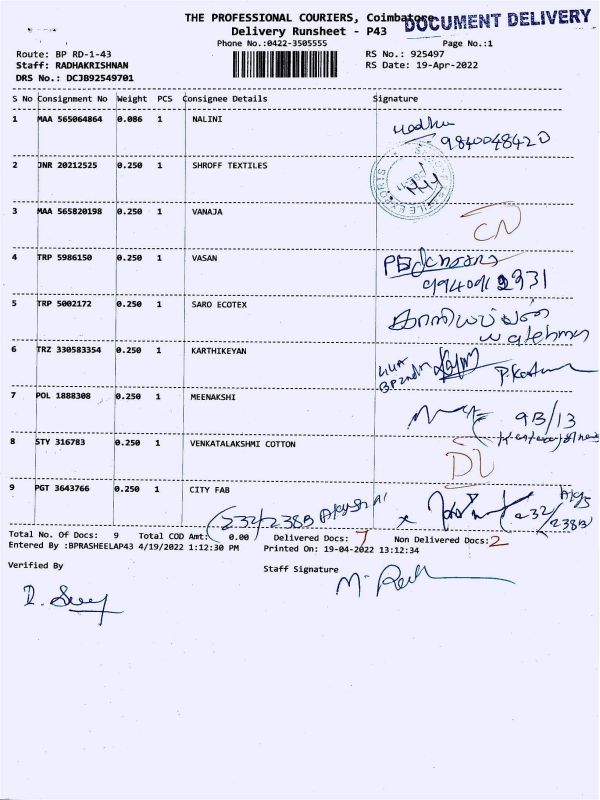 THE PROFESSIONAL COURIERS, Coimbatore
DOCUMENT DELIVERY
Delivery Runsheet - P43
Phone No.:0422-3505555
Page No.:1
Route: BP RD-1-43
RS No.: 925497
Staff: RADHAKRISHNAN
RS Date: 19-Apr-2022
DRS No.: DCJB92549701
S No Consignment No Weight PCS Consignee Details Signature
1 MAA 565064864 0.086 1 NALINI
9840048420
2 JNR 20212525 0.250 1 SHROFF TEXTILES
3 MAA 565820198 0.250 1 VANAJA
CN
4 TRP 5986150 0.250 1 VASAN
5 TRP 5002172 0.250 1 SARO ECOTEX
watchman
6 TRZ 330583354 0.250 1 KARTHIKEYAN
7 POL 1888308 0.250 1 MEENAKSHI
9B/13
8 STY 316783 0.250 1 VENKATALAKSHMI COTTON
DL
9 PGT 3643766 0.250 1 CITY FAB
232/238B
x
232/238B
Total No. Of Docs: 9 Total COD Amt: 0.00 Delivered Docs: 7 Non Delivered Docs: 2
Entered By :BPRASHEELAP43 4/19/2022 1:12:30 PM Printed On: 19-04-2022 13:12:34
Verified By
Staff Signature